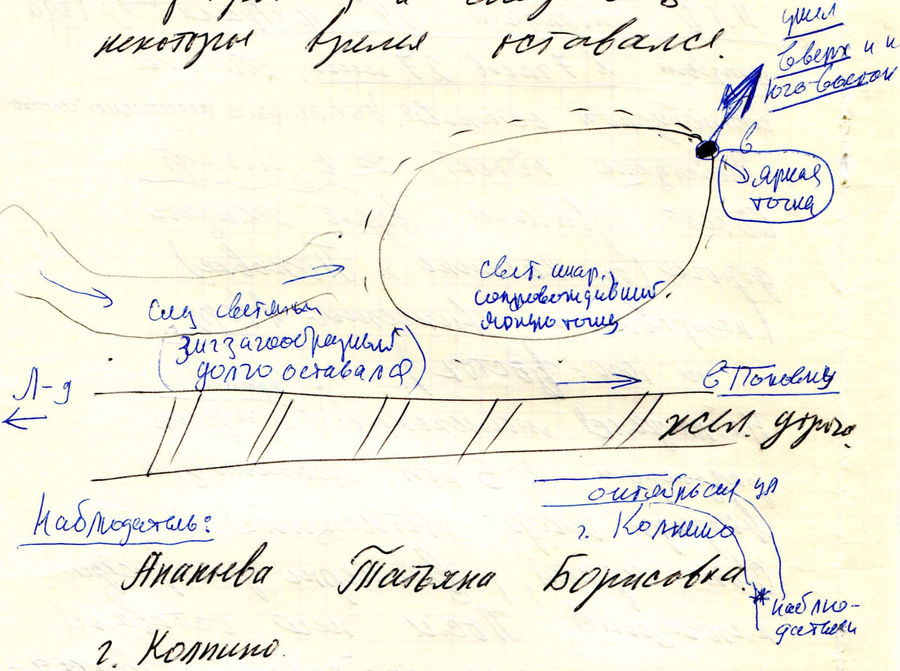 некоторы время оставался.
ушел
вверх и н
юго-восток
в
яркая
точка
свет. шар.,
сопровождивший
яркую точку
след светлый
зигзагообразный
долго оставался
Л-д
в Поповку
жел. дорога.
октябрьская ул
г. Колпино
Наблюдатель:
Ананьева Татьяна Борисовна.
наблю-
датели
г. Колпино.